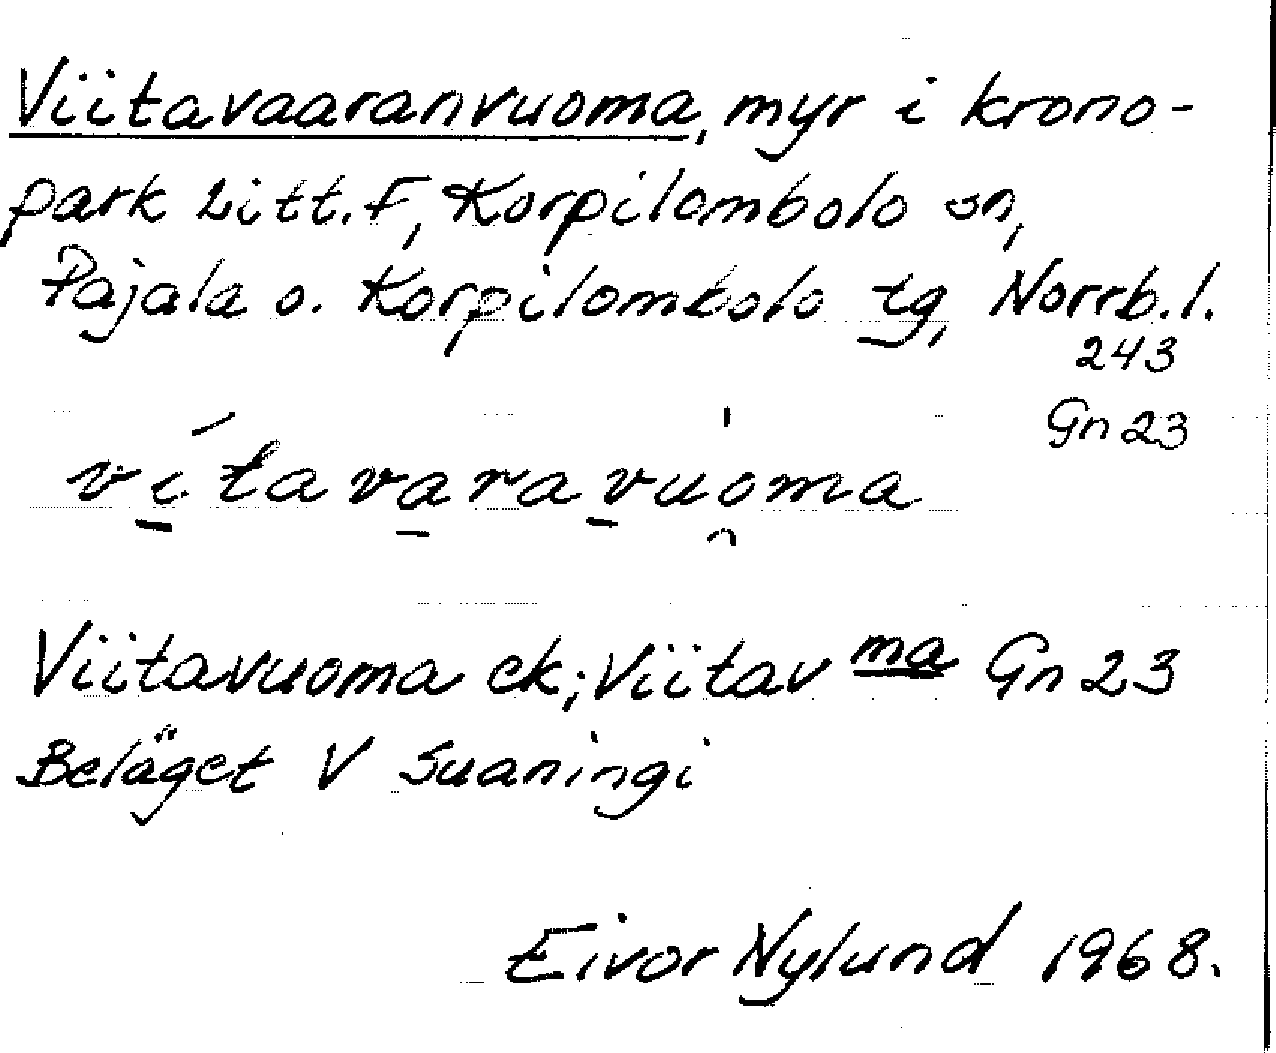 Viitavaaranvuoma, myr i krono-
park Litt. F, Korpilombolo sn,
Pajala o. Korpilombolo tg, Norrb. l.
243
Gn 23
ví̱tava̱rav̱uo̯̍ma
Viitavuoma ek; Viitav ma Gn 23
Beläget V Suaningi
Eivor Nylund 1968.